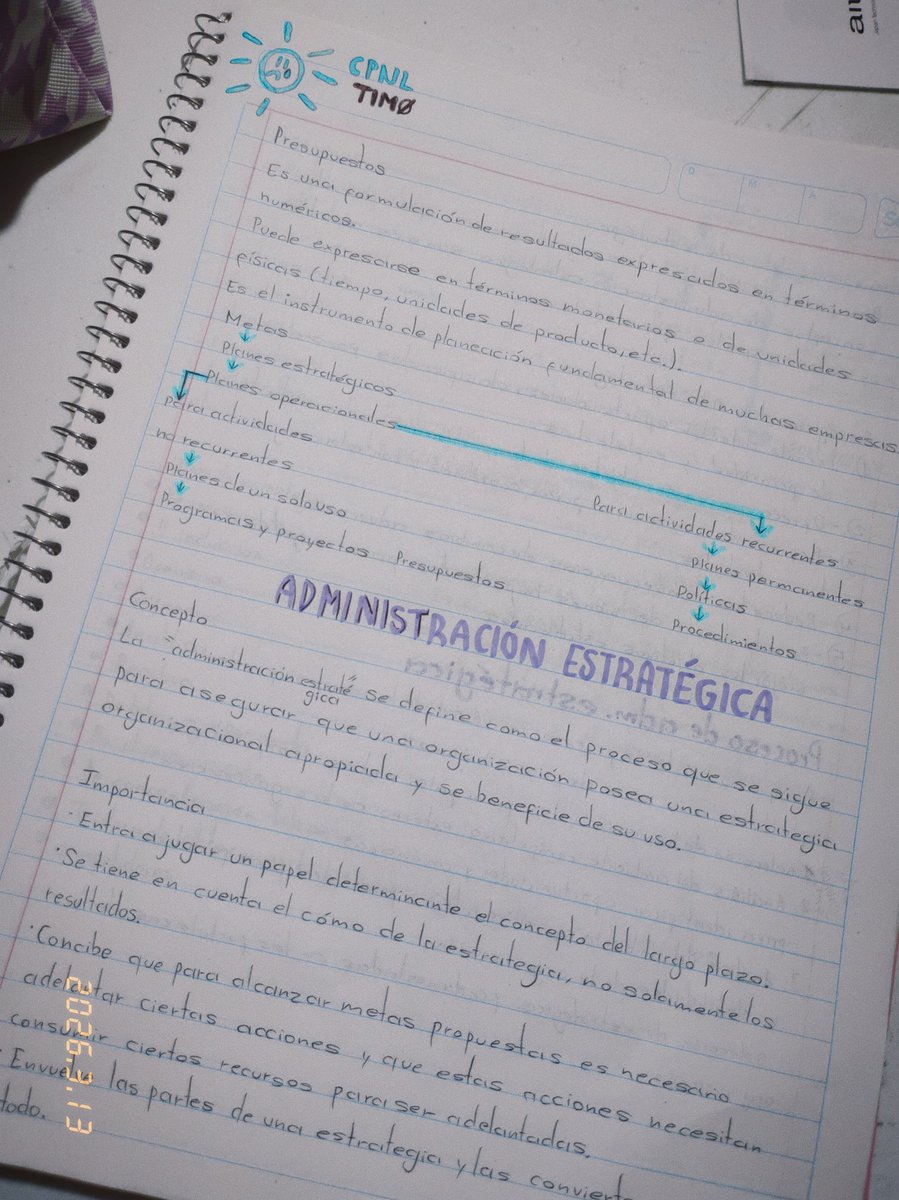 CPNL
TIMØ
Presupuestos
Es una formulación de resultados expresados en términos
numéricos.
Puede expresarse en términos monetarios o de unidades
físicas (tiempo, unidades de producto, etc.).
Es el instrumento de planeación fundamental de muchas empresas.
Metas
Planes estratégicos
Planes operacionales
Para actividades
no recurrentes
Planes de un solo uso
Programas y proyectos Presupuestos
Para actividades recurrentes
Planes permanentes
Políticas
Procedimientos
ADMINISTRACIÓN ESTRATÉGICA
Concepto
La "administración estratégica" se define como el proceso que se sigue
para asegurar que una organización posea una estrategia
organizacional apropiada y se beneficie de su uso.
Importancia
· Entra a jugar un papel determinante el concepto del largo plazo.
· Se tiene en cuenta el cómo de la estrategia, no solamente los
resultados.
· Concibe que para alcanzar metas propuestas es necesario
adelantar ciertas acciones y que estas acciones necesitan
consumir ciertos recursos para ser adelantadas.
· Envuelve las partes de una estrategia y las convierte
todo.
2026.3.13